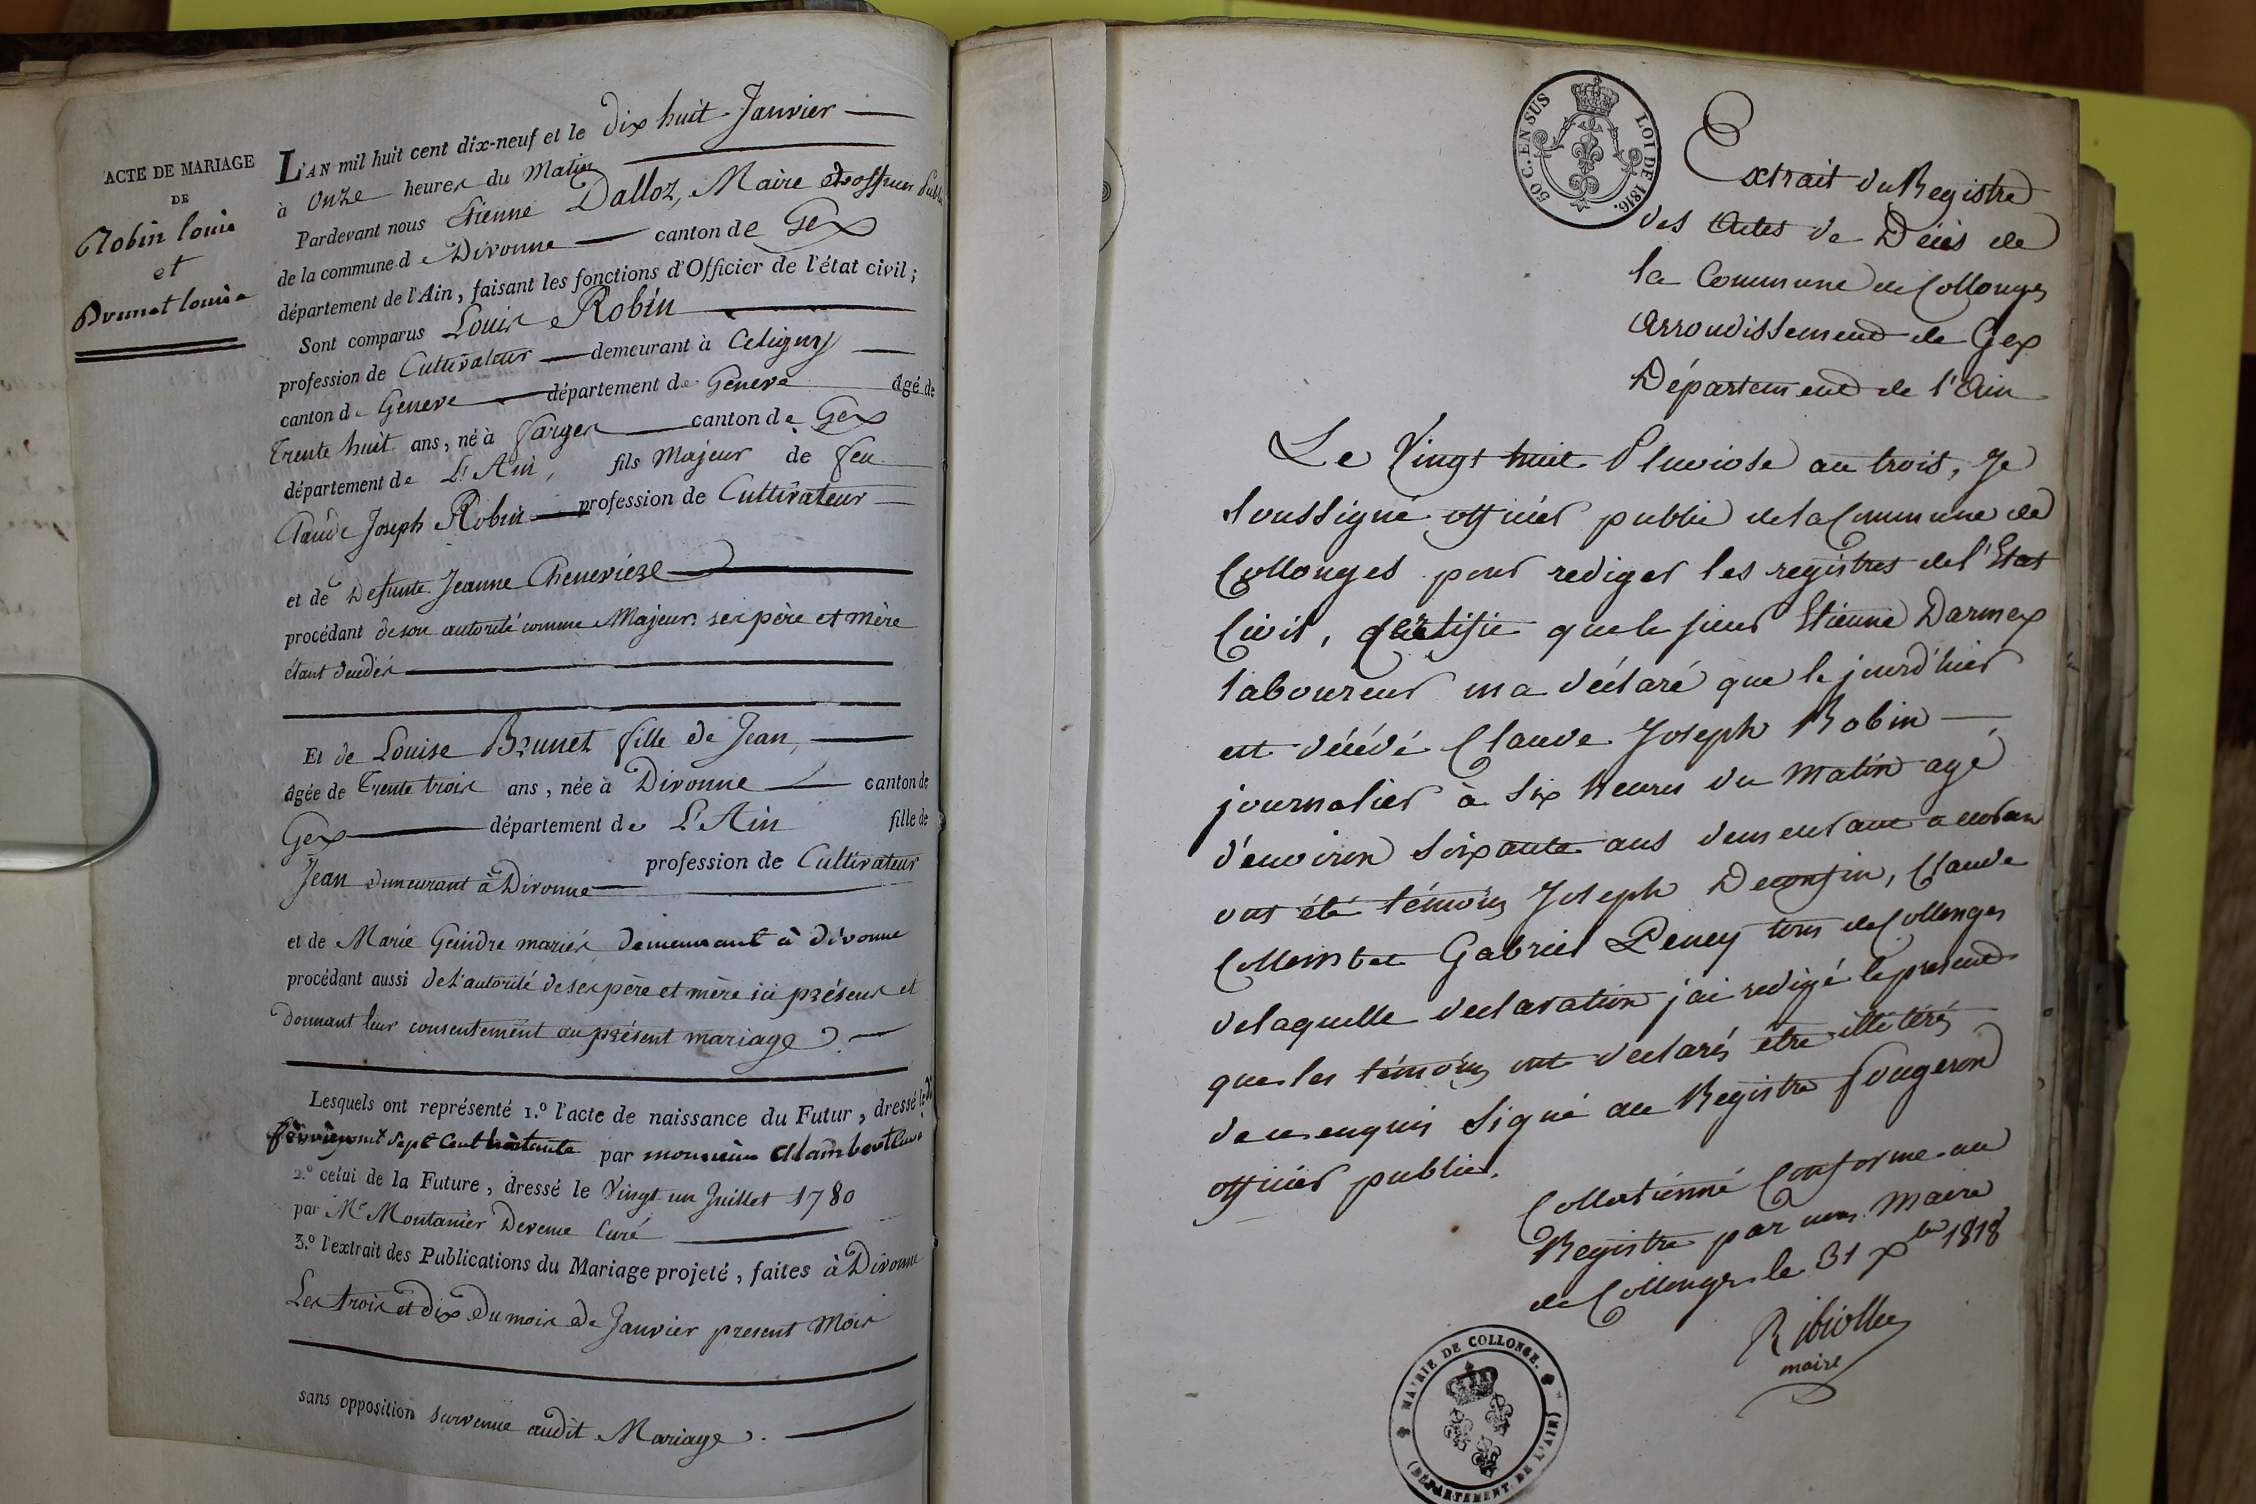 ACTE DE MARIAGE
DE
Robin louis
et
Brunet louise
L'AN mil huit cent dix-neuf et le dix huit Janvier
à Onze heures du Matin
Pardevant nous Etienne Dalloz, Maire et officier Public
de la commune de Divonne canton de Gex
département de l'Ain, faisant les fonctions d'Officier de l'état civil;
Sont comparus Louis Robin
profession de Cultivateur demeurant à Celigny
canton de Geneve département de Geneve âgé de
Trente huit ans, né à farges canton de Gex
département de L'Ain, fils Majeur de feu
Claude Joseph Robin profession de Cultivateur
et de Defunte Jeanne Cheneviere
procédant de son autorité comme Majeur ses père et mère
étant decédés
Et de Louise Brunet fille de Jean,
âgée de Trente trois ans, née à Divonne canton de
Gex département de L'Ain fille de
Jean demeurant à Divonne profession de Cultivateur
et de Marie Geindre mariés demeurant à divonne
procédant aussi de l'autorité de ses père et mère ici présens et
donnant leur consentement au présent mariage
Lesquels ont représenté 1.º l'acte de naissance du Futur, dressé le
sept Cent par monsieur
2.º celui de la Future, dressé le Vingt un Juillet 1780
par Mr Montanier Devenu Curé
3.º l'extrait des Publications du Mariage projeté, faites à Divonne
Les trois et dix du mois de Janvier present Mois
sans opposition survenue audit Mariage.
50 C. EN SUS
LOI DE 1816.
Extrait du Registre
des Actes de Décès de
la Commune de Collonges
Arrondissement de Gex
Département de l'Ain
Le Vingt huit Pluviose an trois, Je
soussigné officier public de la Commune de
Collonges pour rediger les registres de l'Etat
Civil, certifie que le sieur Etienne Darmex
laboureur m'a déclaré que le jourd'hier
est décédé Claude Joseph Robin
journalier à six heures du matin agé
d'environ soixante ans demeurant a
ont été témoins Joseph Deconfin, Claude
Collombet Gabriel Peney tous de Collonges
de laquelle declaration j'ai redigé le présent
que les témoins ont declarés être illitérés
de ce enquis signé au Registre fougeron
officier public.
Collationné Conforme au
Registre par nous maire
de Collonges le 31 Xbre 1818
Ribiollet
maire
MAIRIE DE COLLONGE.
(DÉPARTEMENT DE L'AIN)